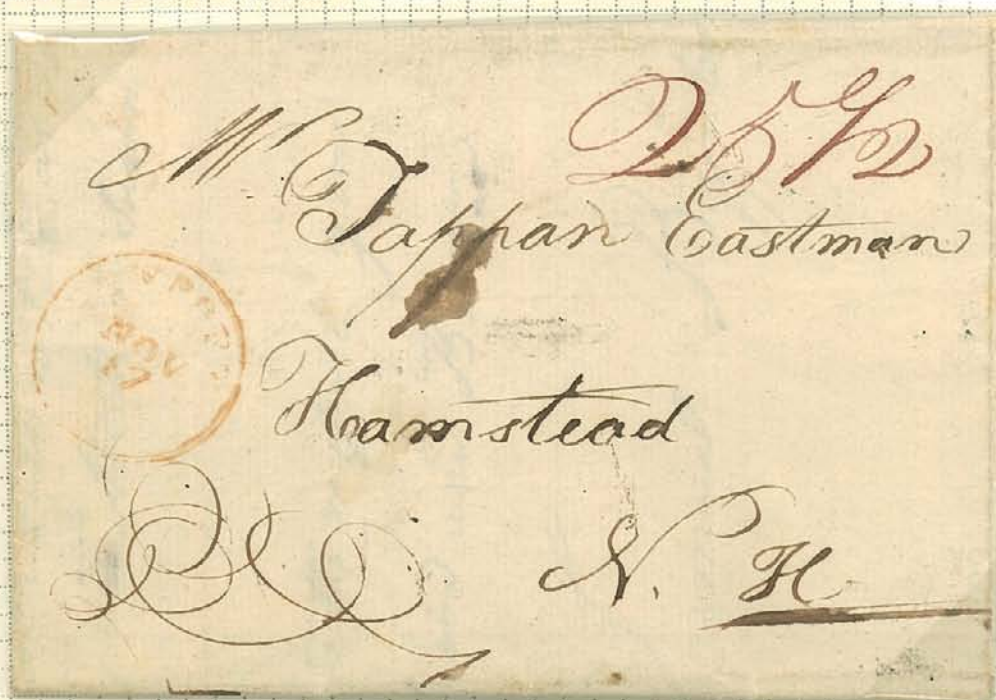 25 1/2
Mr
Tappan Eastman
NOV
17
Hamstead
N. H